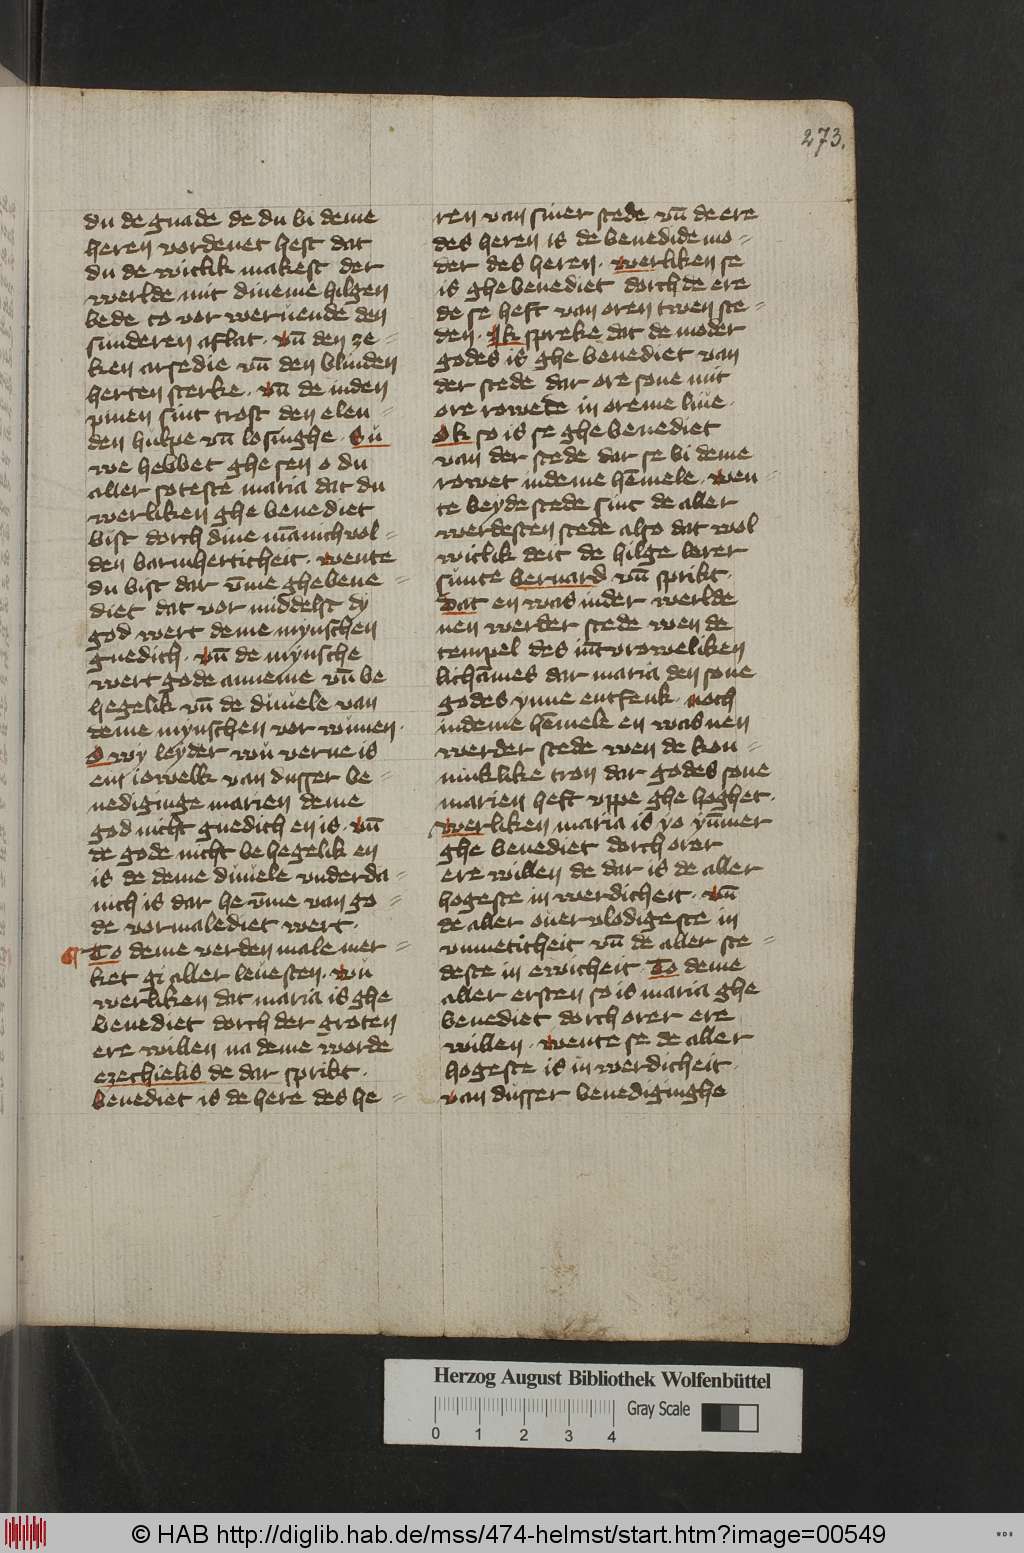 273.
du de gnade de du bi deme
heren vordenet hest dat
du de witlik makest der
werlde mit dineme hilgen
bede to vor weruende den
sunderen aflat · vn̄ den ze=
ken arsedie vn̄ den blinden
herten sterke · vn̄ de in den
pinen sint trost den elen=
den hulpe vn̄ losinghe · Su̇
we hebbet ghe sen o du
aller soteste maria dat du
werliken ghe benediet
bist dorch dine mānichuol=
den barmherticheit · wente
du bist dar v̄me ghe bene=
diet dat vor middelst dy
god wert deme mynschen
gnedich · vn̄ de mynsche
wert gode anneme vn̄ be
hegelik vn̄ de diuuele van
deme mynschen vor wunnen ·
O wy leyder wu verne is
em iowelk van dusser be=
nediginge marien deme
god nicht gnedich en is · vn̄
de gode nicht be hegelik en
is de deme diuuele vnderda=
nich is dar he v̄me van go=
de vormalediet wert ·
¶ To deme verden male mer=
ket gi aller leuesten · wu
werliken dat maria is ghe
benediet dorch der groten
ere willen na deme worde
ezechielis de dar sprikt ·
benediet is de here des he=
ren van siner stede vn̄ de ere
des heren is de benedide mo=
der des heren · werliken se
is ghe benediet dorch de ere
de se heft van oren twen ste=
den · Ik spreke dat de moder
godes is ghe benediet van
der stede dar ore sone mit
ore rowede in oreme liue ·
Ok so is se ghe benediet
van der stede dar se bi deme
rowet in deme hēmele · wen=
te beyde stede sint de aller
werdesten stede also dat wol
witlik deit de hilge lerer
sunte bernard vn̄ sprikt ·
Dat en was in der werlde
nen werder stede wen de
tempel des iūcvroweliken
lichāmes dar maria den sone
godes ynne entfenk · noch
in deme hēmele en was nen
werder stede wen de kon=
nuklike tron dar godes sone
marien heft vppe ghe hoghet ·
werliken maria is yo ym̄mer
ghe benediet dorch orer
ere willen de dar is de aller
hogeste in werdicheit · vn̄
de aller ouer vlodigeste in
vnmeticheit vn̄ de aller ste=
deste in ewicheit · To deme
aller ersten so is maria ghe
benediet dorch orer ere
willen · wente se de aller
hogeste is in werdicheit ·
van dusser benediginghe
Herzog August Bibliothek Wolfenbüttel
0 1 2 3 4 Gray Scale
© HAB http://diglib.hab.de/mss/474-helmst/start.htm?image=00549